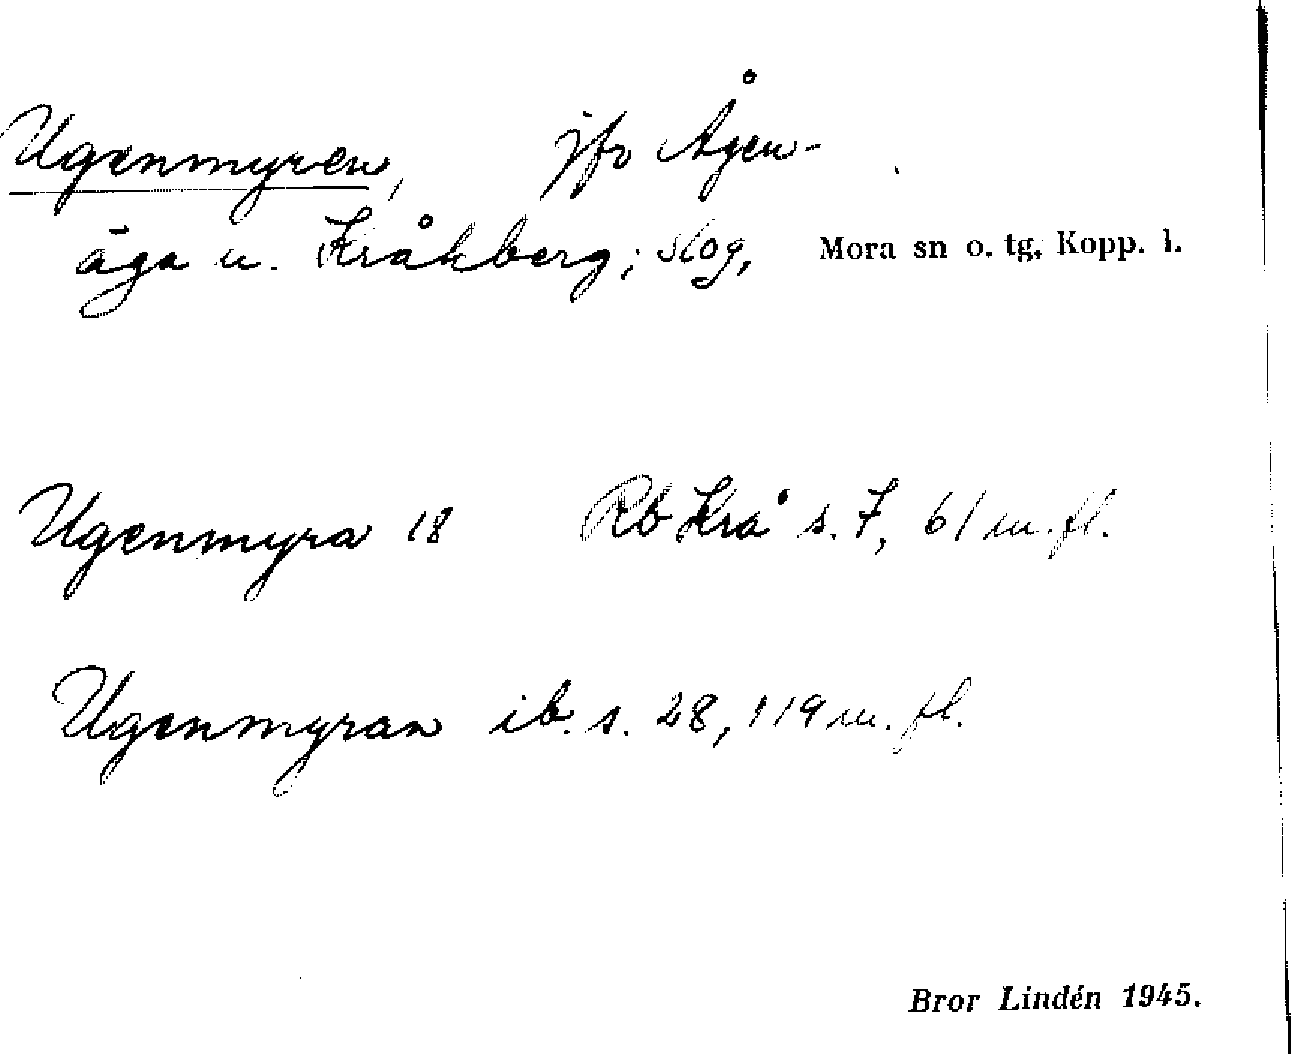 Ugenmyren, jfr Ågen-
äga u. Kråkberg; skog, Mora sn o. tg, Kopp. l.
Ugenmyra 18 Rb Krå s. 7, 61 m. fl.
Ugenmyran ib. s. 28, 119 m. fl.
Bror Lindén 1945.